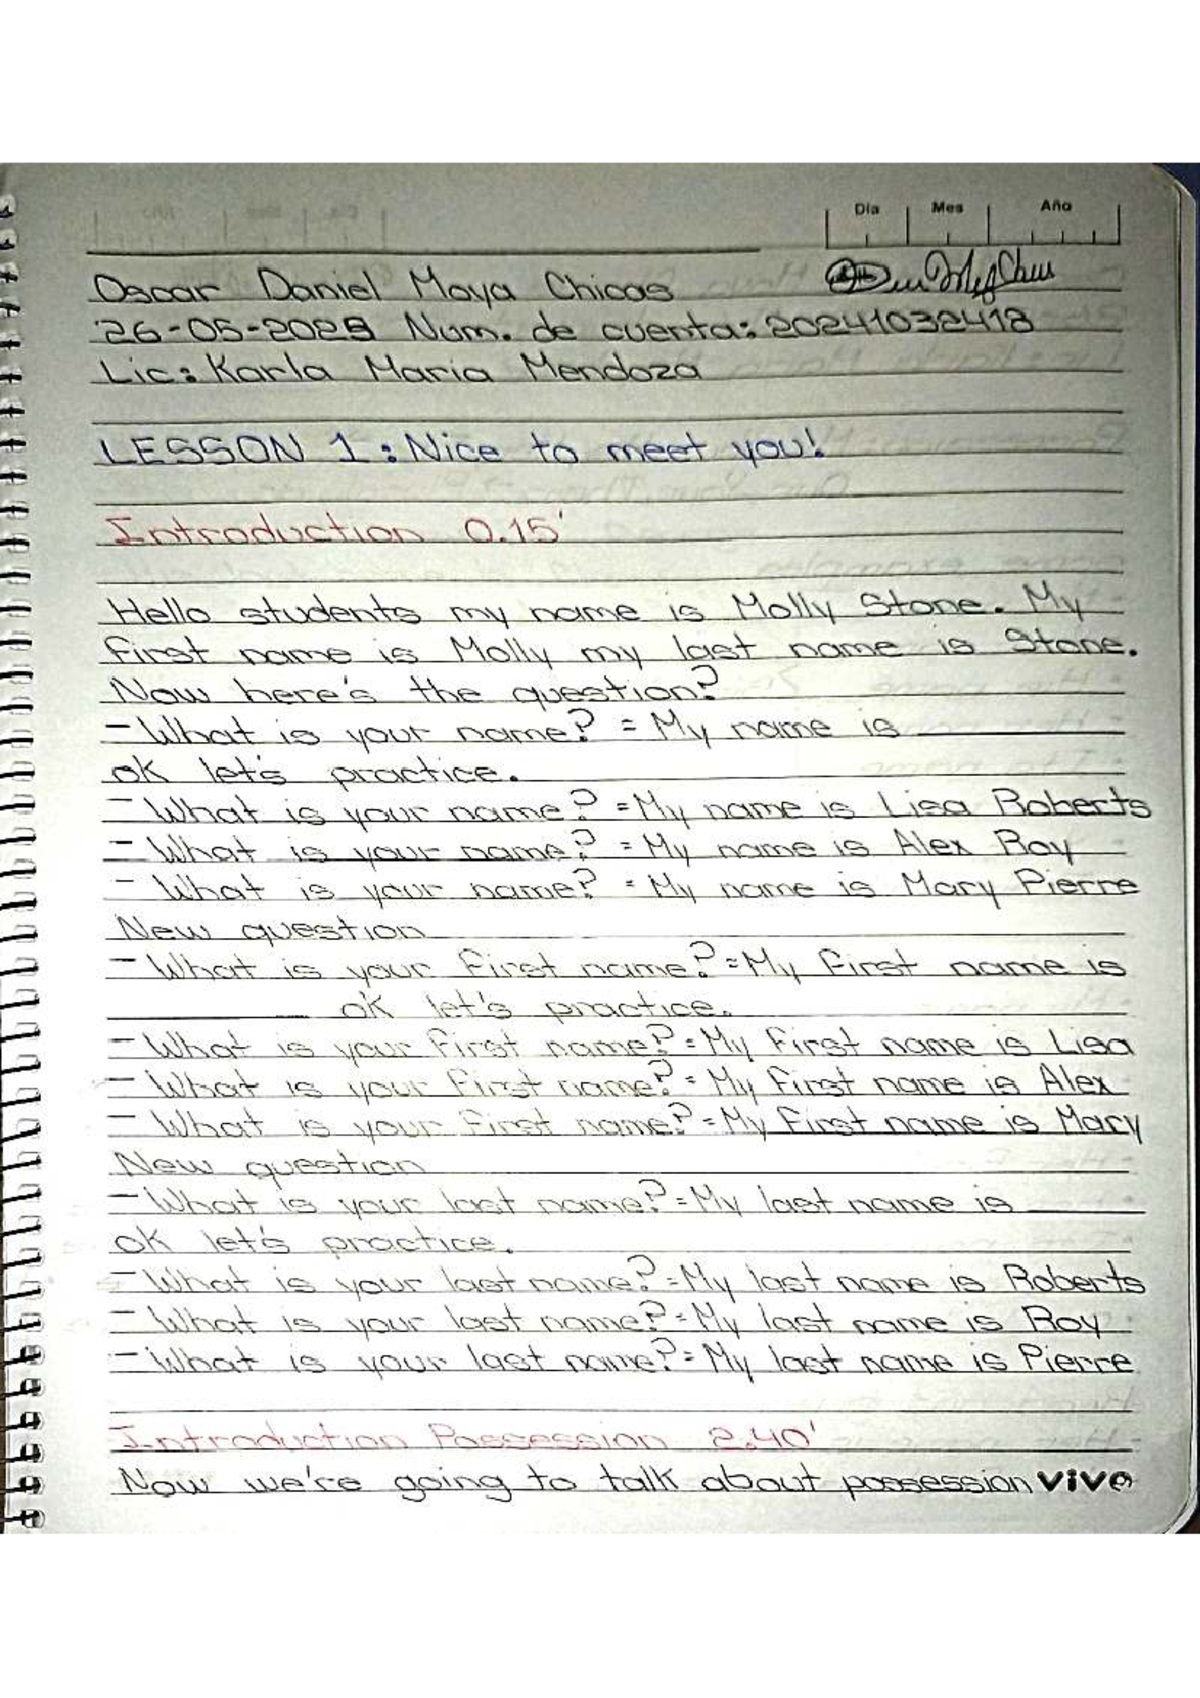 Día Mes Año
Oscar Daniel Moya Chicas
26-05-2025 Num. de cuenta: 20241032418
Lic: Karla Maria Mendoza
LESSON 1: Nice to meet you!
Introduction 0.15'
Hello students my name is Molly Stone. My
first name is Molly my last name is Stone.
Now here's the question?
- What is your name? = My name is ______
ok let's practice.
- What is your name? = My name is Lisa Roberts
- What is your name? = My name is Alex Roy
- What is your name? = My name is Mary Pierre
New question
- What is your first name? = My first name is
______ ok let's practice.
- What is your first name? = My first name is Lisa
- What is your first name? = My first name is Alex
- What is your first name? = My first name is Mary
New question
- What is your last name? = My last name is ______
ok let's practice.
- What is your last name? = My last name is Roberts
- What is your last name? = My last name is Roy
- What is your last name? = My last name is Pierre
Introduction Possession 2.40'
Now we're going to talk about possession vive